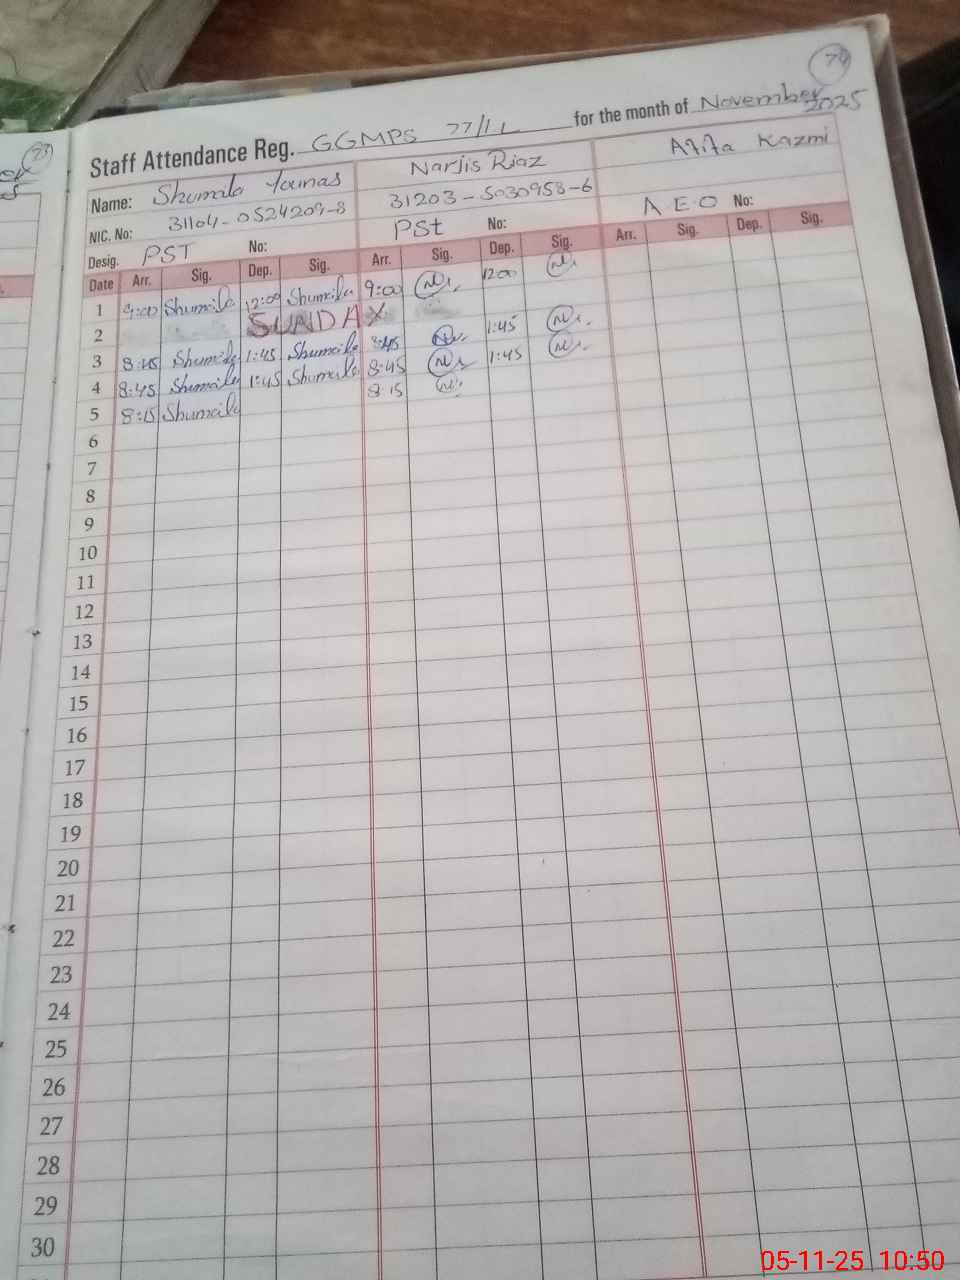 74
73
Staff Attendance Reg. GGMPS 77/1 L for the month of November 2025
Name: Shumila Younas Narjis Riaz Atifa Kazmi
NIC. No: 31104-0524209-8 31203-5030958-6
Desig. PST No: PSt No: AEO No:
Date Arr. Sig. Dep. Sig. Arr. Sig. Dep. Sig. Arr. Sig. Dep. Sig.
1 9:00 Shumila 12:00 Shumila 9:00 12:00
2 SUNDAY
3 8:45 Shumila 1:45 Shumaila 8:45 1:45
4 8:45 Shumaila 1:45 Shumaila 8:45 1:45
5 8:15 Shumaila 8:15
6
7
8
9
10
11
12
13
14
15
16
17
18
19
20
21
22
23
24
25
26
27
28
29
30
05-11-25 10:50